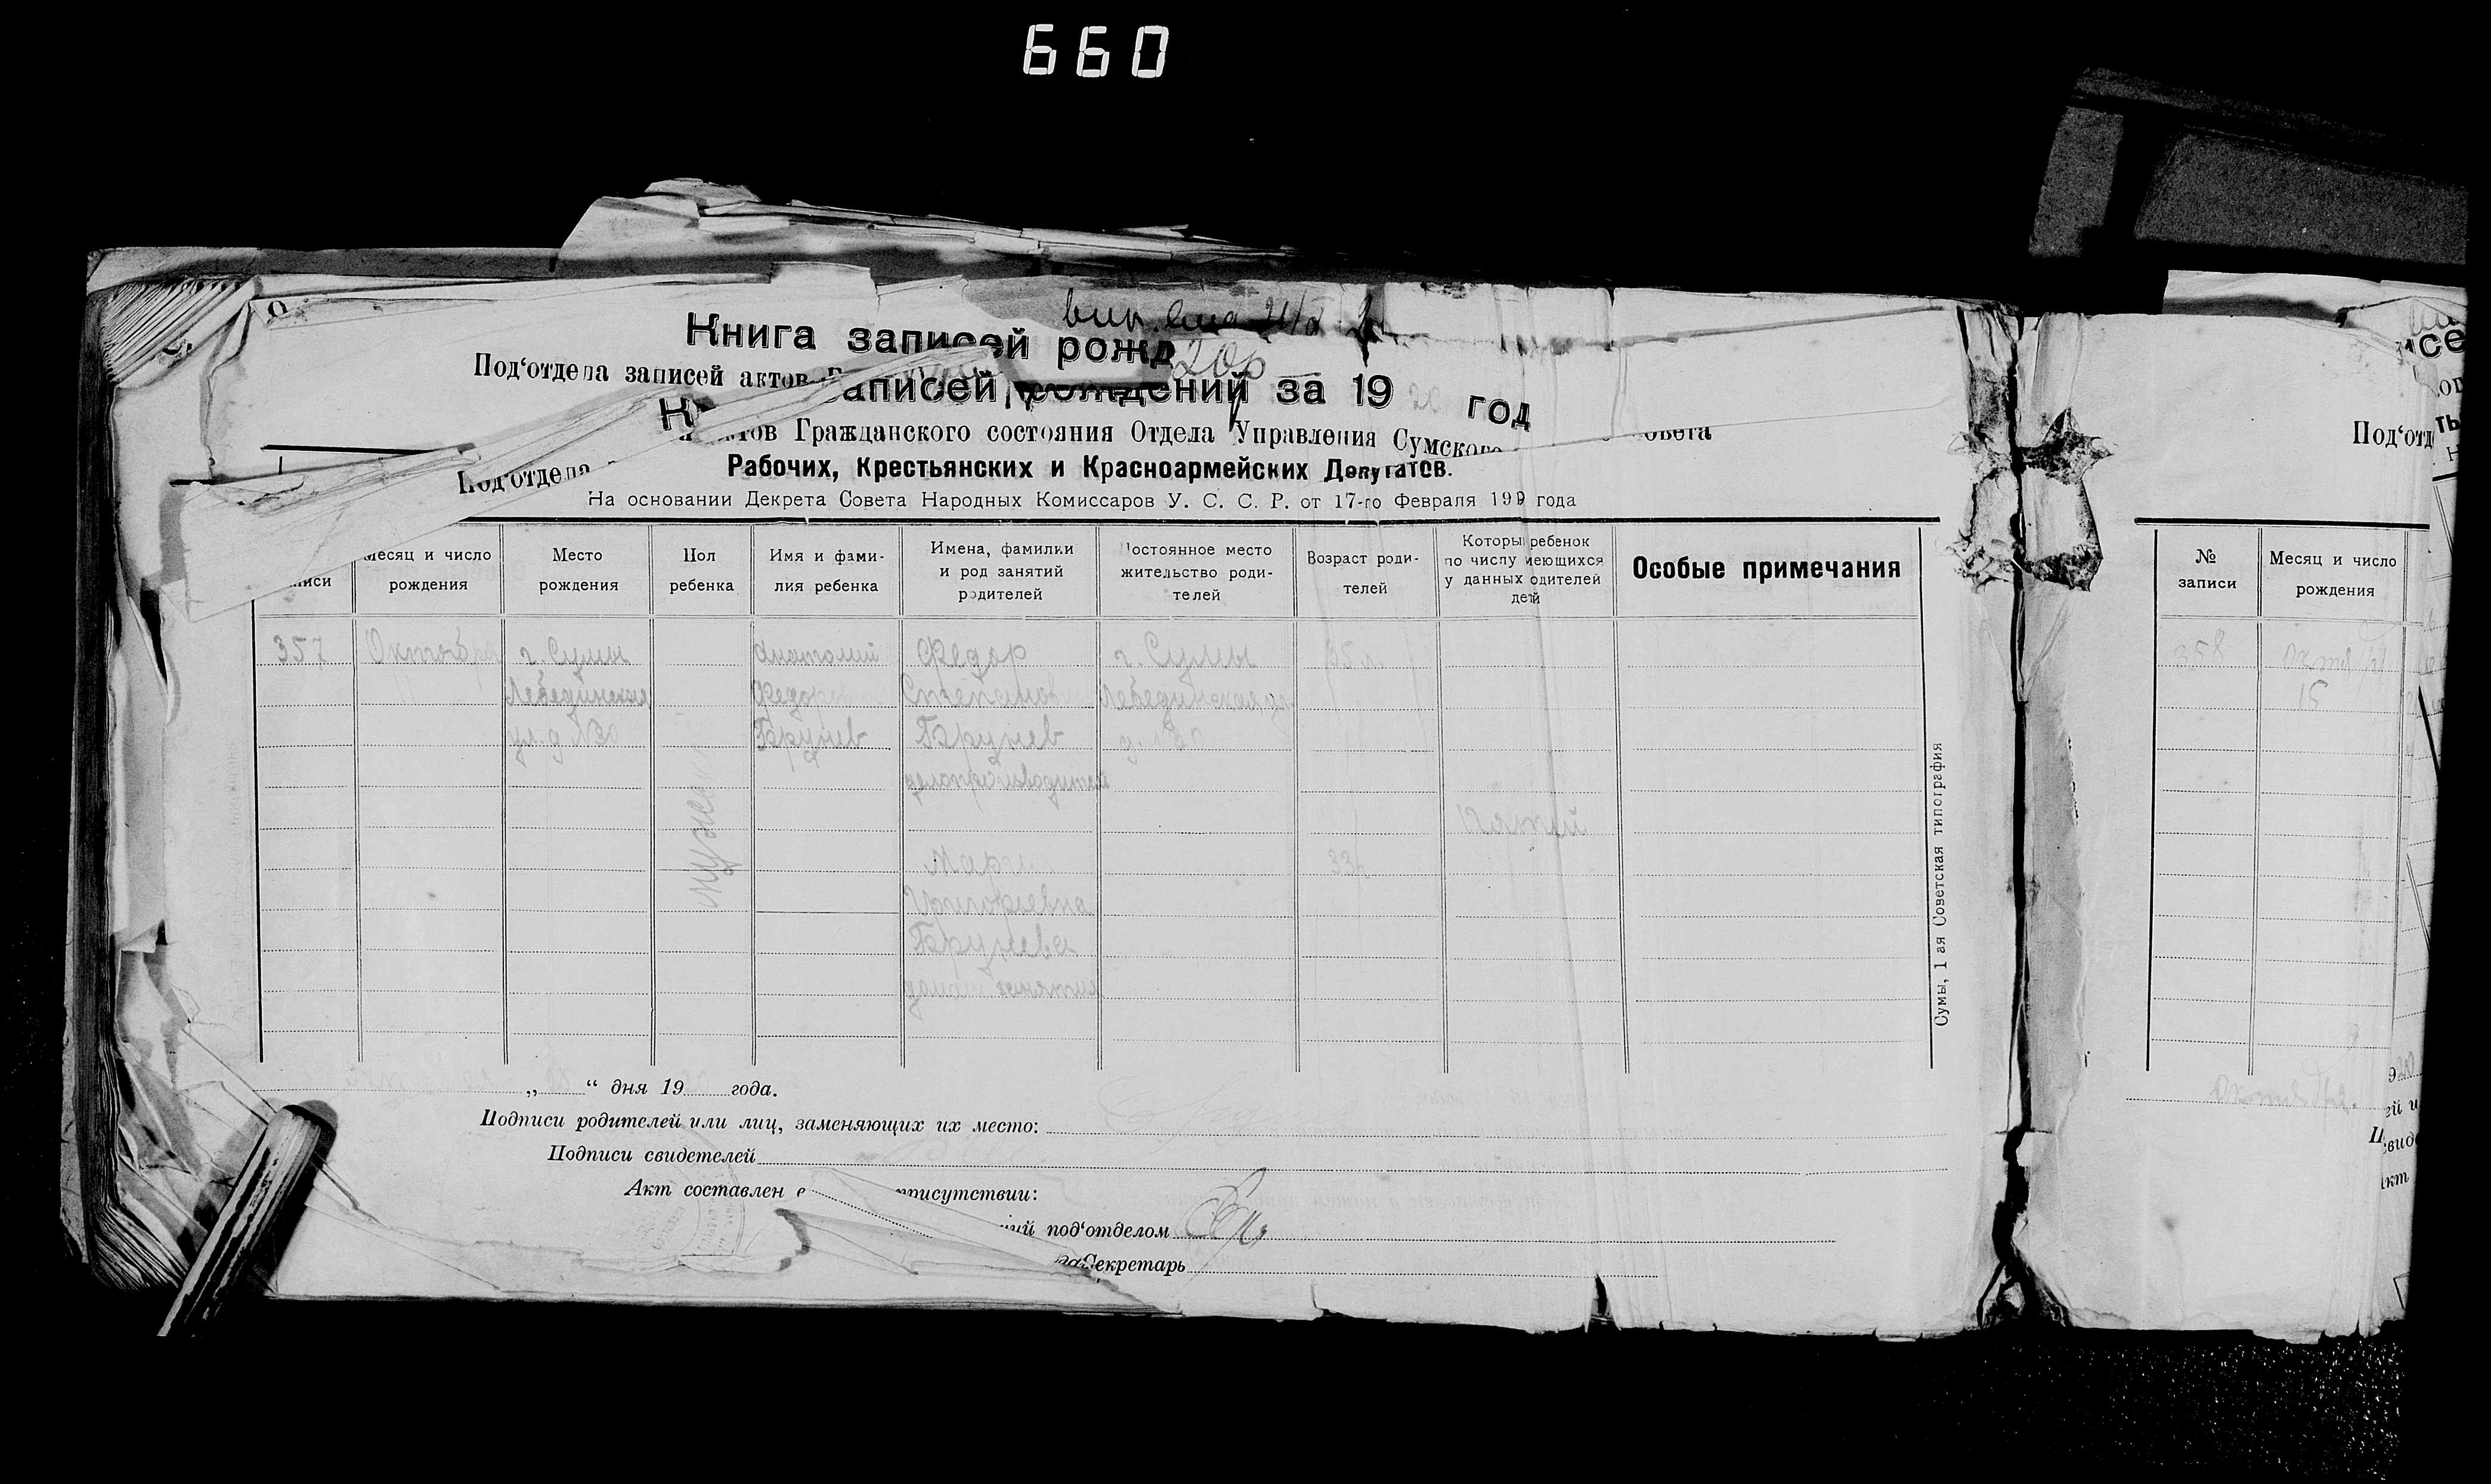 660
Книга записей рожд
Под‘отдела записей актов
20р
аписей рождений за 19 20 год
Под‘отдела
актов Гражданского состояния Отдела Управления Сумского Совета
Рабочих, Крестьянских и Красноармейских Депутатов.
На основании Декрета Совета Народных Комиссаров У. С. С. Р. от 17-го Февраля 199 года
писи
Месяц и число рождения
Место рождения
Пол ребенка
Имя и фами-
лия ребенка
Имена, фамилии
и род занятий
родителей
Постоянное место
жительство роди-
телей
Возраст роди-
телей
Которы ребенок
по числу меющихся
у данных одителей
дей
Особые примечания
357
Октября
11
г. Сумы
Лебединская
ул. д. №30
мужский
Анатолий
Федоров
Брунев
Федор
Степанов
Брунев
делопроизводитель
Мария
Григорьевна
Брунева
домаш занятия
г. Сумы
Лебединская ул.
д. №30
35 л.
33 л.
Пятый
„ “ дня 19 года.
Подписи родителей или лиц, заменяющих их место:
Подписи свидетелей
Акт составлен в присутствии:
ий под‘отделом
Секретарь
Сумы, 1 ая Советская типография
Под‘отд
№
записи
Месяц и число
рождения
358
15
Октября